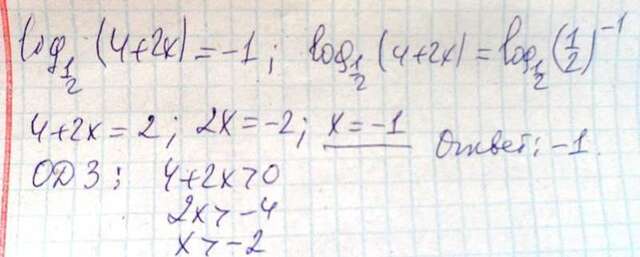 log_{1/2} (4+2x) = -1; log_{1/2} (4+2x) = log_{1/2} (1/2)^{-1}
4+2x = 2; 2x = -2; x = -1 Ответ: -1.
ОДЗ: 4+2x>0
2x > -4
x > -2